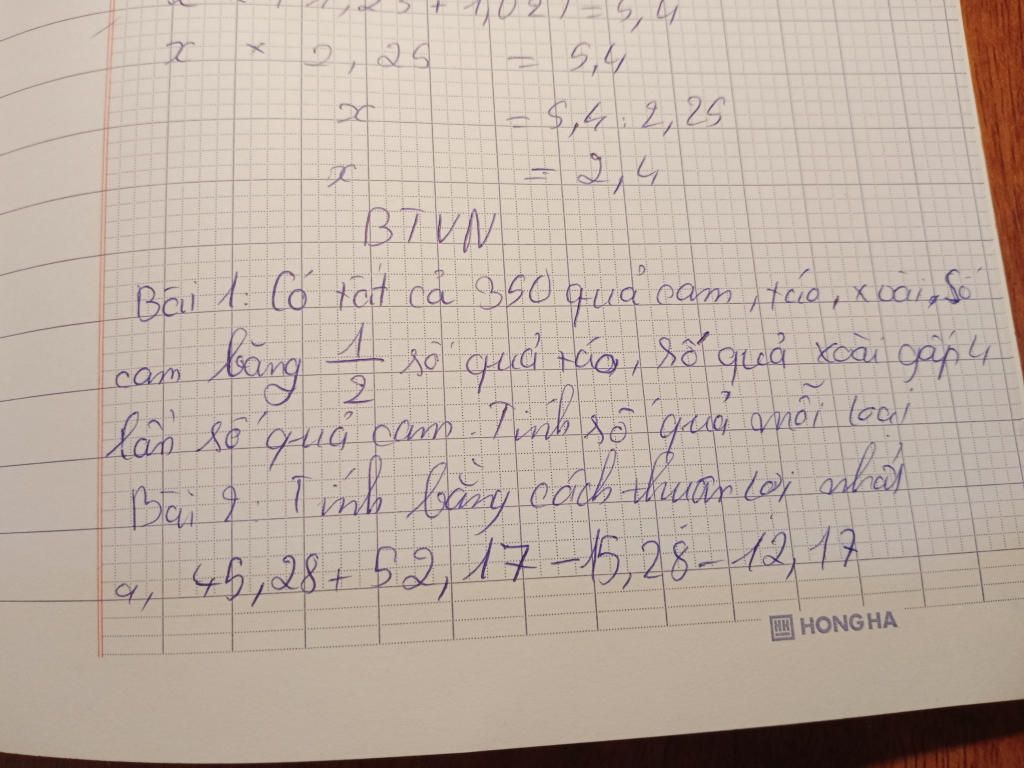 x × 2,25 = 5,4
x = 5,4 : 2,25
x = 2,4
BTVN
Bài 1: Có tất cả 350 quả cam, táo, xoài, số
cam bằng 1/2 số quả táo, số quả xoài gấp 4
lần số quả cam. Tính số quả mỗi loại
Bài 2: Tính bằng cách thuận lợi nhất
a, 45,28 + 52,17 - 15,28 - 12,17
HONG HA